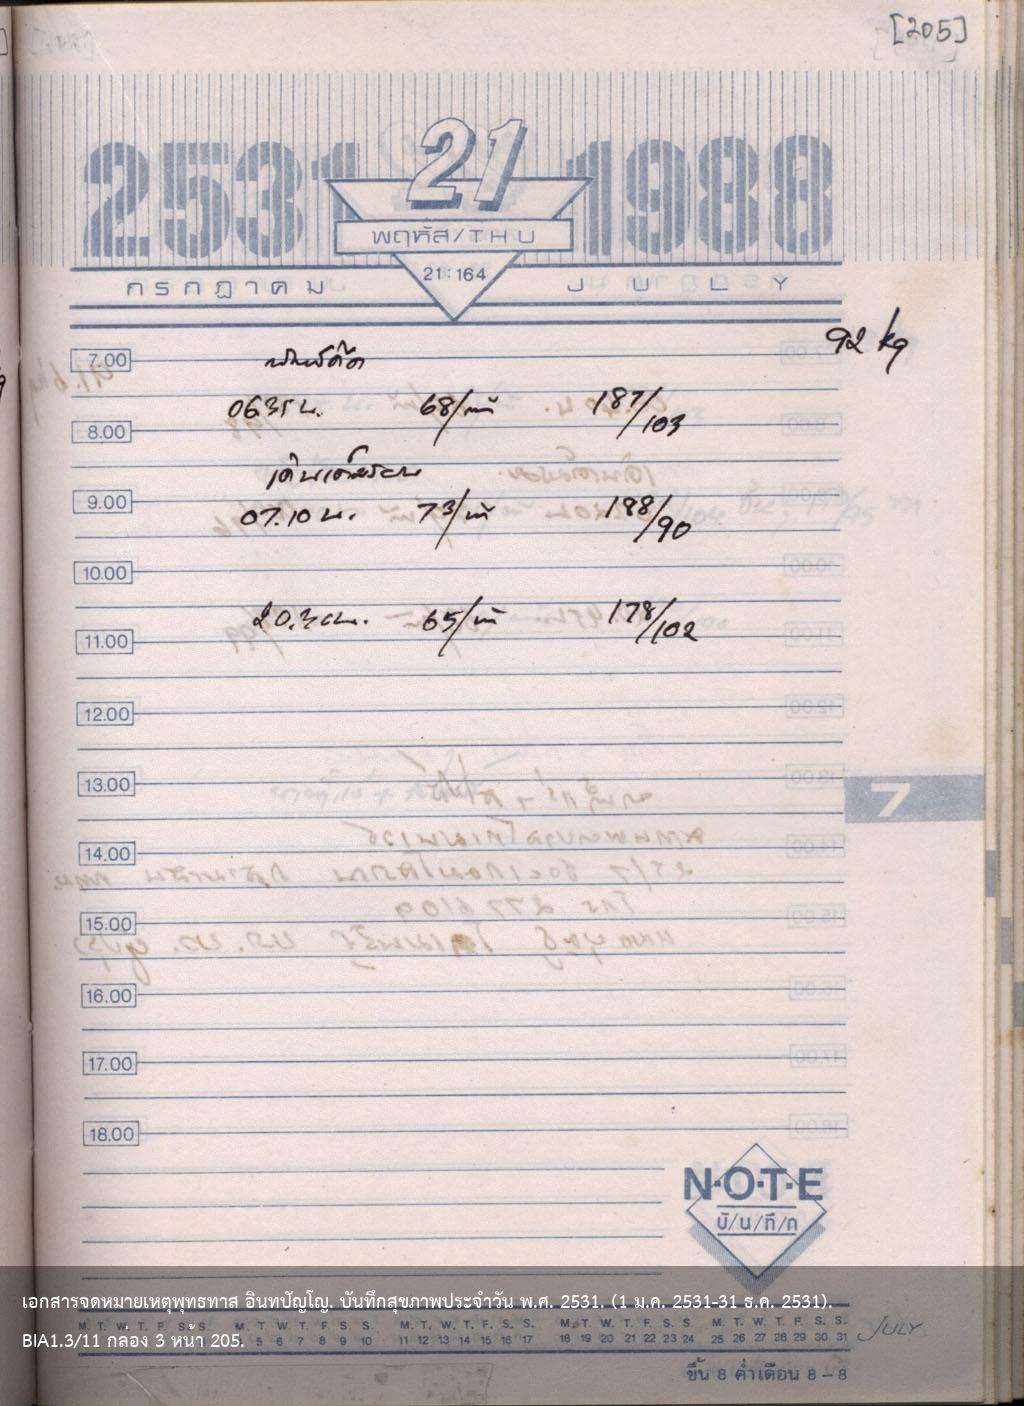 [205]
2531 21 1988
พฤหัส/THU
21:164
กรกฎาคม JULY
92 kg
7.00
06.35 น. 68/นาที 187/103
8.00
9.00
07.10 น. 73/นาที 188/90
10.00
20.30 น. 65/นาที 178/102
11.00
12.00
13.00
7
14.00
15.00
16.00
17.00
18.00
N·O·T·E
บั/น/ทึ/ก
เอกสารจดหมายเหตุพุทธทาส อินทปัญโญ. บันทึกสุขภาพประจำวัน พ.ศ. 2531. (1 ม.ค. 2531-31 ธ.ค. 2531).
M. T. W. T. F. S. S. M. T. W. T. F. S. S. M. T. W. T. F. S. S. M. T. W. T. F. S. S. M. T. W. T. F. S. S.
BIA1.3/11 กล่อง 3 หน้า 205. 5 6 7 8 9 10 11 12 13 14 15 16 17 18 19 20 21 22 23 24 25 26 27 28 29 30 31 JULY
ขึ้น 8 ค่ำเดือน 8 – 8